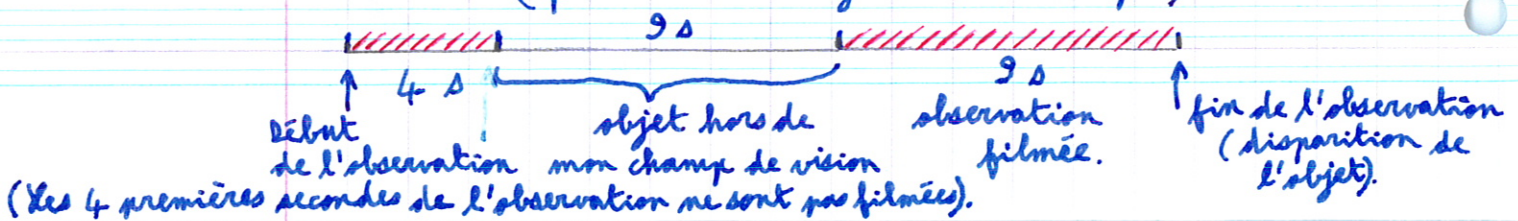 9 s
4 s
9 s
Début
de l'observation
objet hors de
mon champ de vision
observation
filmée.
fin de l'observation
(disparition de
l'objet).
(Les 4 premières secondes de l'observation ne sont pas filmées).